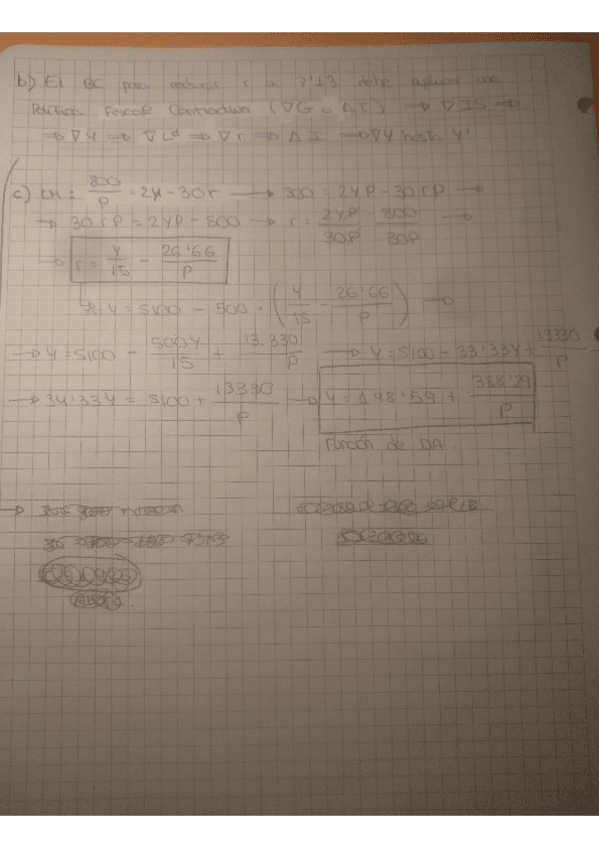 b) El BC para reducir r a 7'13 debe aplicar una
Política Fiscal Contractiva (∇G o ΔT) → ∇IS ⇒
⇒ ∇Y ⇒ ∇Lᵈ ⇒ ∇r ⇒ ΔI → ∇Y hasta Y'
c) LM: 800/P = 2Y - 30r → 800 = 2YP - 30rP →
→ 30rP = 2YP - 800 → r = 2YP/30P - 800/30P →
→ r = Y/15 - 26'66/P
Y = 5100 - 500 · (Y/15 - 26'66/P) →
→ Y = 5100 - 500Y/15 + 13.330/P → Y = 5100 - 33'33Y + 13330/P
→ 34'33Y = 5100 + 13330/P → Y = 148'59 + 388'29/P
Función de DA